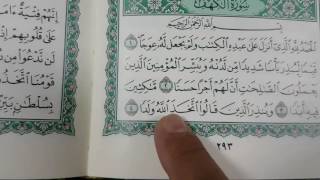 سُورَةُ الكَهْفِ
بِسْمِ اللَّهِ الرَّحْمَٰنِ الرَّحِيمِ
الْحَمْدُ لِلَّهِ الَّذِي أَنْزَلَ عَلَىٰ عَبْدِهِ الْكِتَابَ وَلَمْ يَجْعَلْ لَهُ عِوَجًا
قَيِّمًا لِيُنْذِرَ بَأْسًا شَدِيدًا مِنْ لَدُنْهُ وَيُبَشِّرَ الْمُؤْمِنِينَ الَّذِينَ
يَعْمَلُونَ الصَّالِحَاتِ أَنَّ لَهُمْ أَجْرًا حَسَنًا ٢ مَاكِثِينَ
فِيهِ أَبَدًا ٣ وَيُنْذِرَ الَّذِينَ قَالُوا اتَّخَذَ اللَّهُ وَلَدًا ٤
٢٩٣
إِنَّهُمْ فِتْيَةٌ
عَلَىٰ قُلُوبِهِمْ
لَنْ نَدْعُوَ
قَوْمُنَا اتَّخَذُوا
بِسُلْطَانٍ بَيِّنٍ